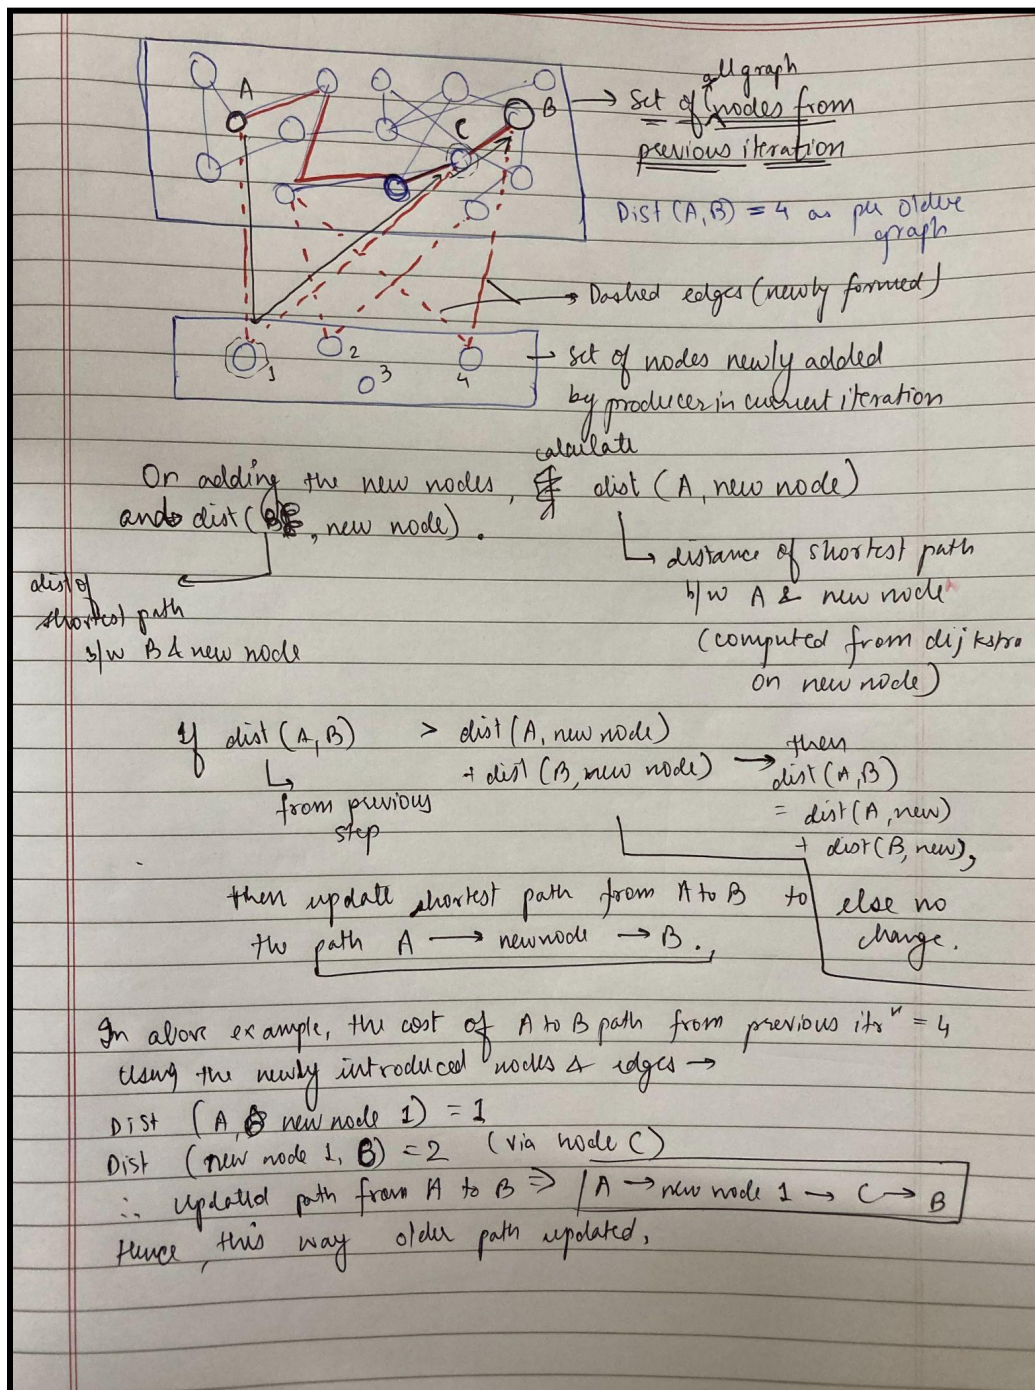 all graph
A
B
C
→ Set of nodes from
previous iteration
Dist (A,B) = 4 as per older
graph
→ Dashed edges (newly formed)
1
2
3
4
→ set of nodes newly added
by producer in current iteration
calculate
On adding the new nodes, dist (A, new node)
and dist(B, new node).
↳ distance of shortest path
b/w A & new node
(computed from dijkstra
on new node)
dist of
shortest path
b/w B & new node
If dist (A,B) > dist (A, new node)
+ dist (B, new node) → then
dist (A,B)
= dist (A, new)
+ dist (B, new),
else no
change.
↳ from previous
step
then update shortest path from A to B to
the path A → new node → B.
In above example, the cost of A to B path from previous itrⁿ = 4
Using the newly introduced nodes & edges →
Dist (A, new node 1) = 1
Dist (new node 1, B) = 2 (via node C)
∴ Updated path from A to B ⇒ A → new node 1 → C → B
Hence, this way older path updated.